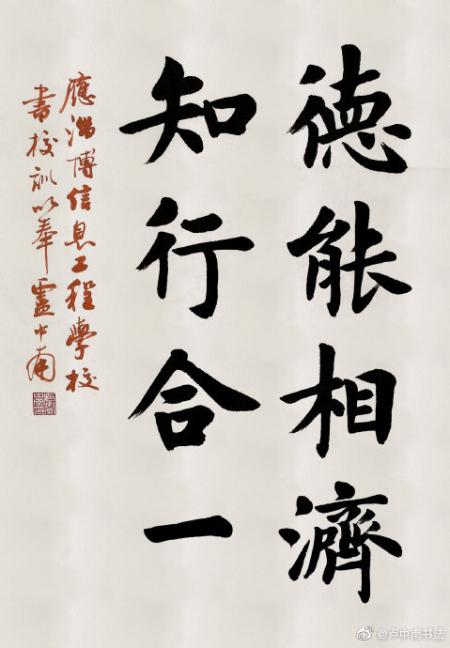 德能相濟
知行合一
應淄博信息工程學校
書校訓以奉盧中南
@卢中南书法